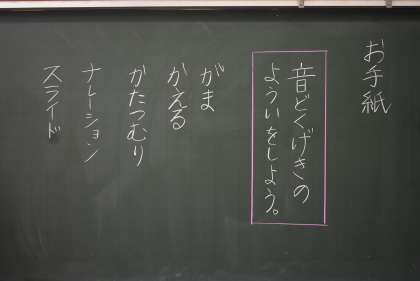 お手紙
音どくげきの
よういをしよう。
がま
かえる
かたつむり
ナレーション
スライド